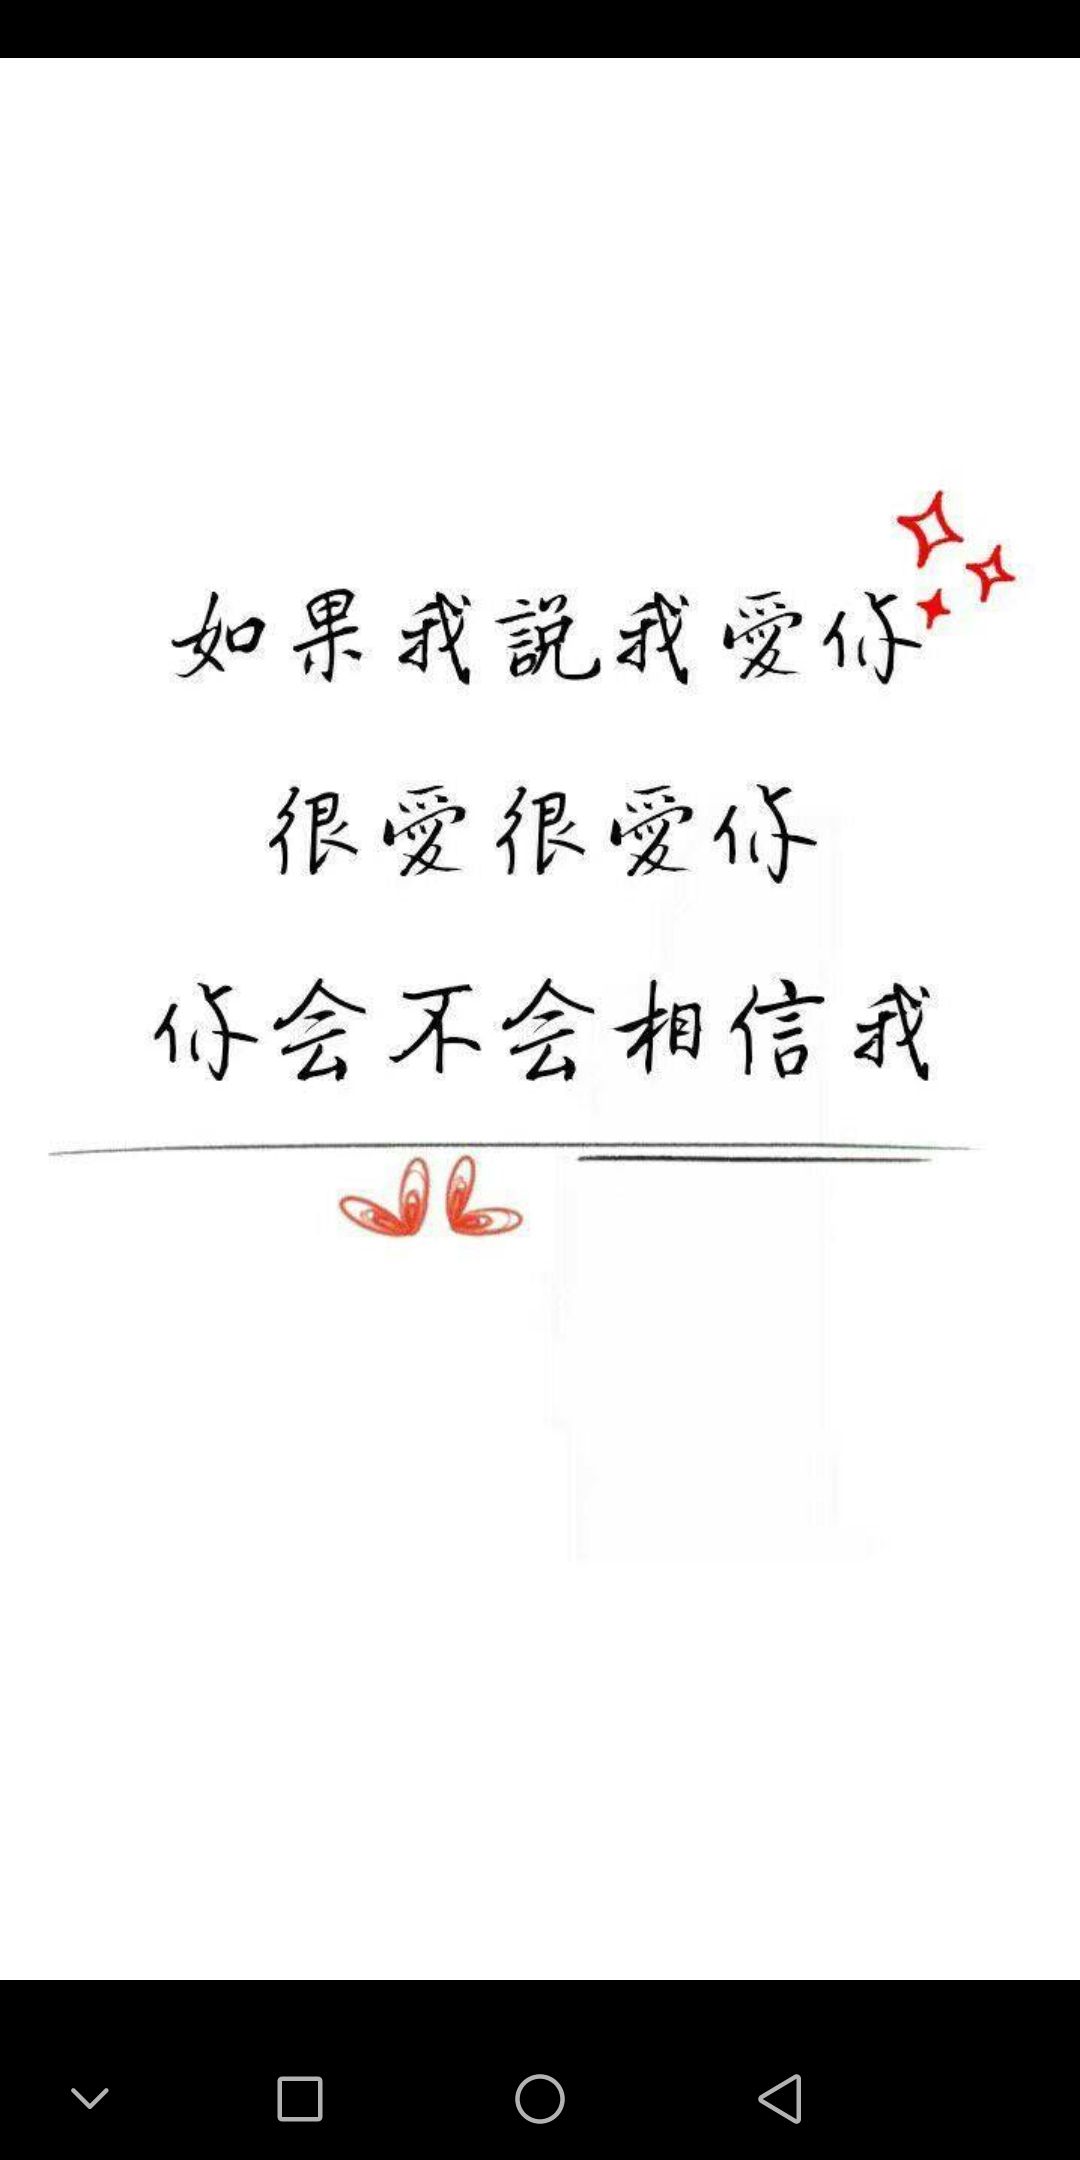 如果我説我愛你
很愛很愛你
你会不会相信我